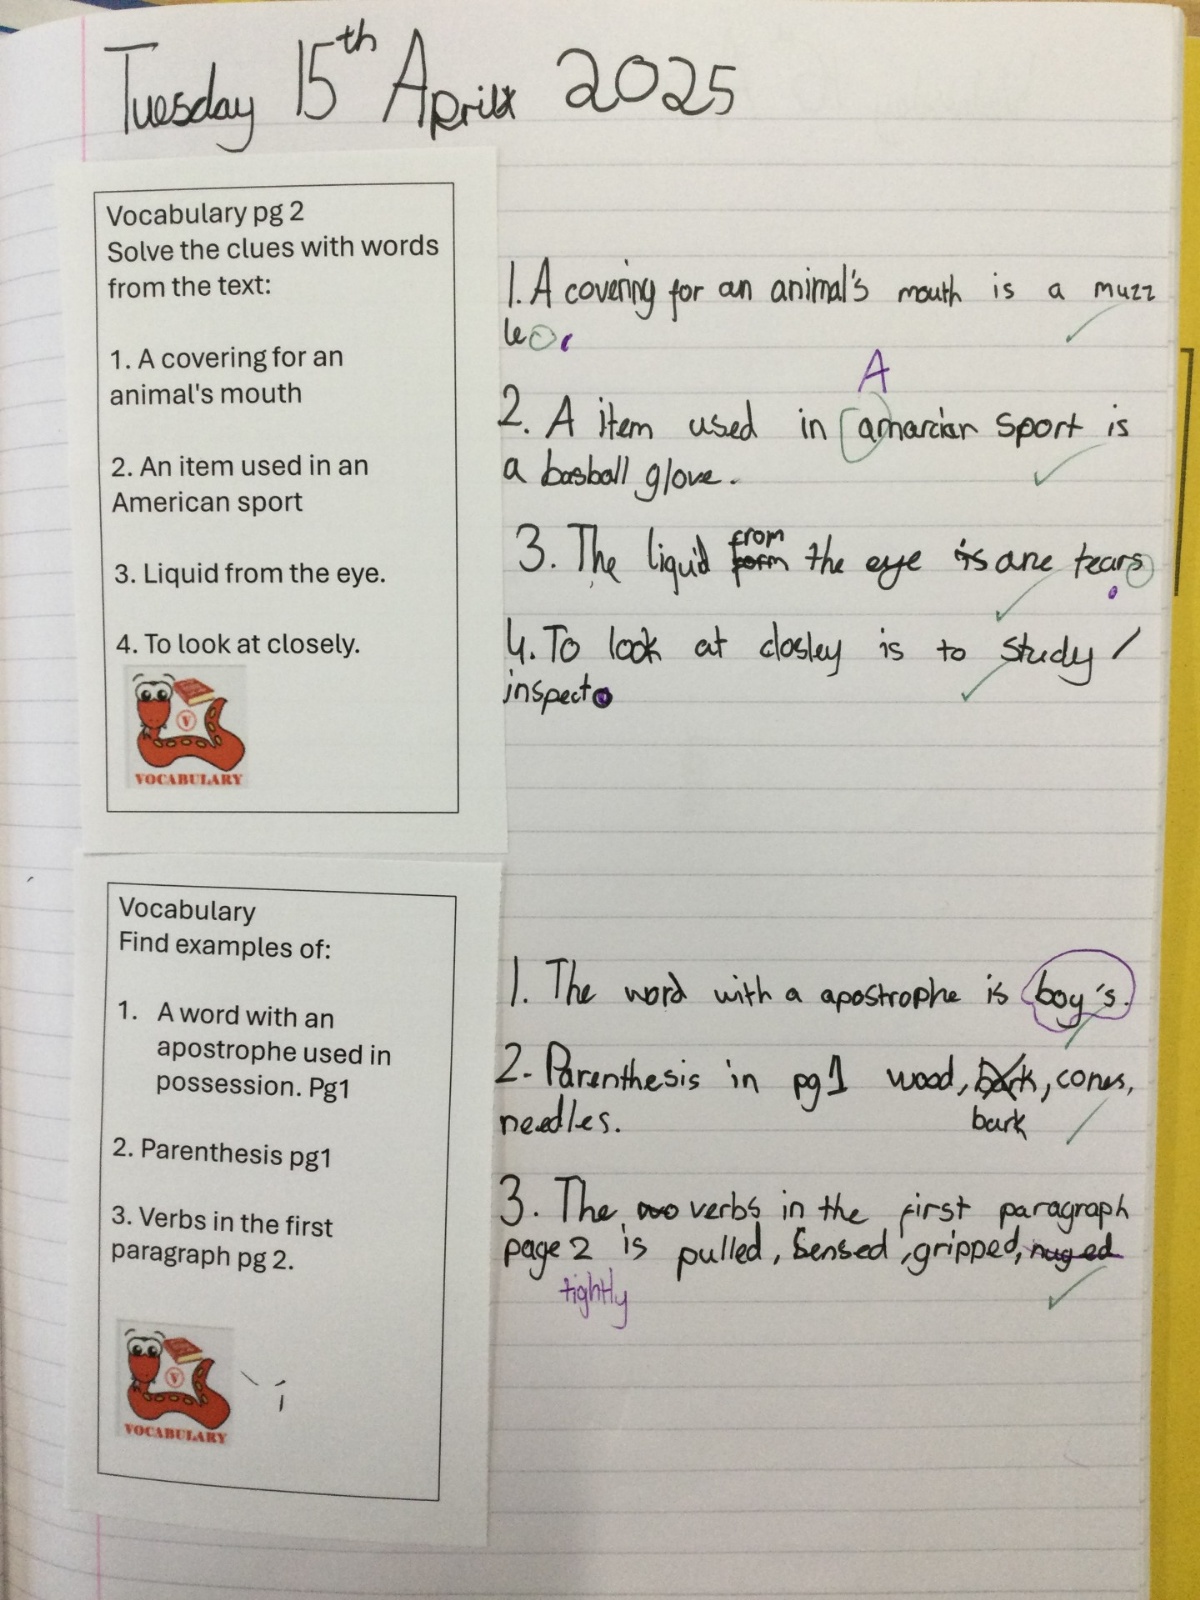 Tuesday 15th April 2025
Vocabulary pg 2
Solve the clues with words
from the text:
1. A covering for an
animal's mouth
2. An item used in an
American sport
3. Liquid from the eye.
4. To look at closely.
V
VOCABULARY
1. A covering for an animal's mouth is a muzz
le.
A
2. A item used in amarcian sport is
a basball glove.
from
3. The liquid form the eye is are tears
.
4. To look at closley is to study /
inspect.
Vocabulary
Find examples of:
1. A word with an
apostrophe used in
possession. Pg1
2. Parenthesis pg1
3. Verbs in the first
paragraph pg 2.
V
VOCABULARY
1. The word with a apostrophe is boy's.
2. Parenthesis in pg 1 wood, bark, cones,
needles. bark
3. The verbs in the first paragraph
page 2 is pulled, sensed, gripped,
tightly